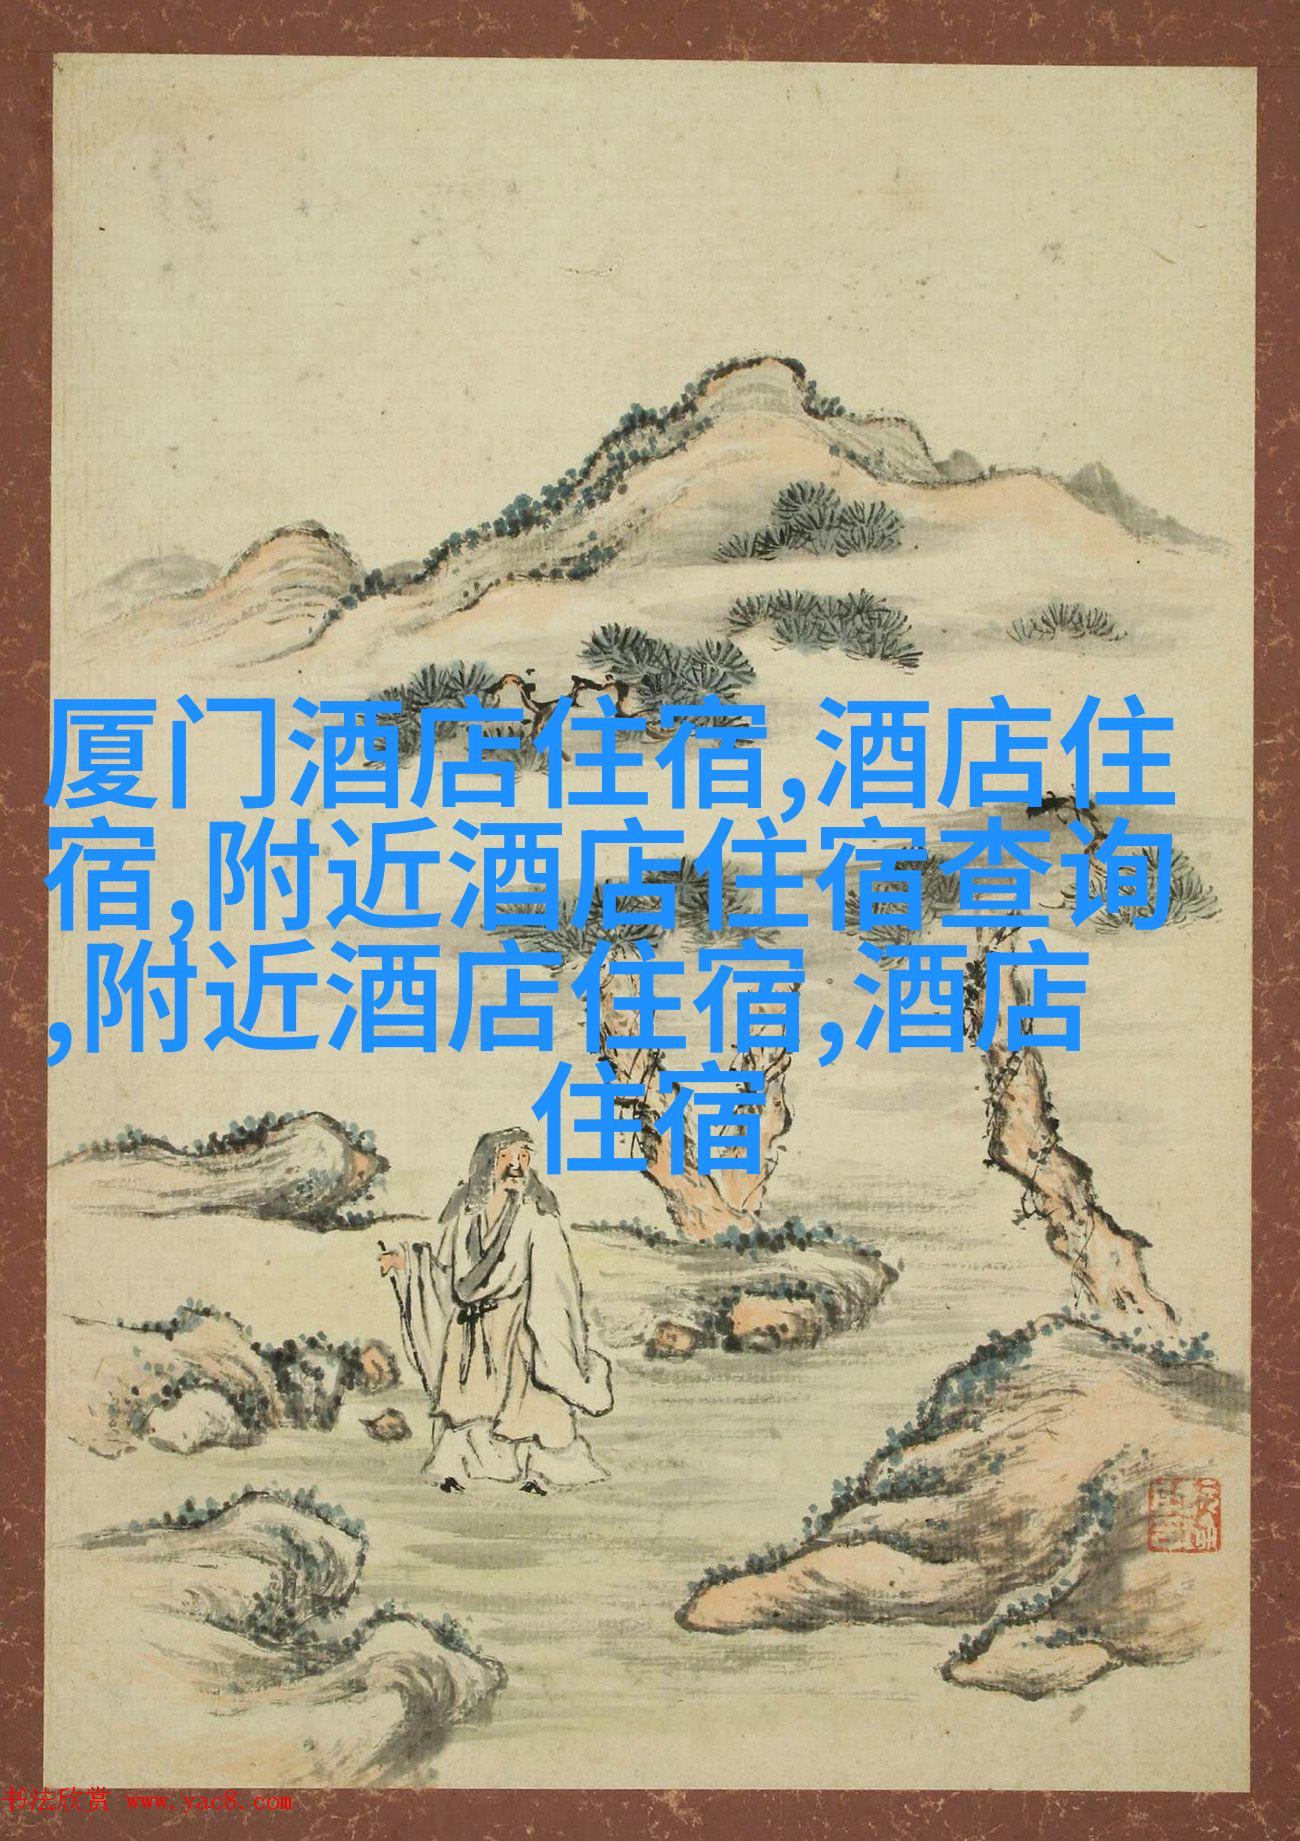 厦门酒店住宿,酒店住
宿,附近酒店住宿查询
,附近酒店住宿,酒店
住宿
书法欣赏 www.yac8.com